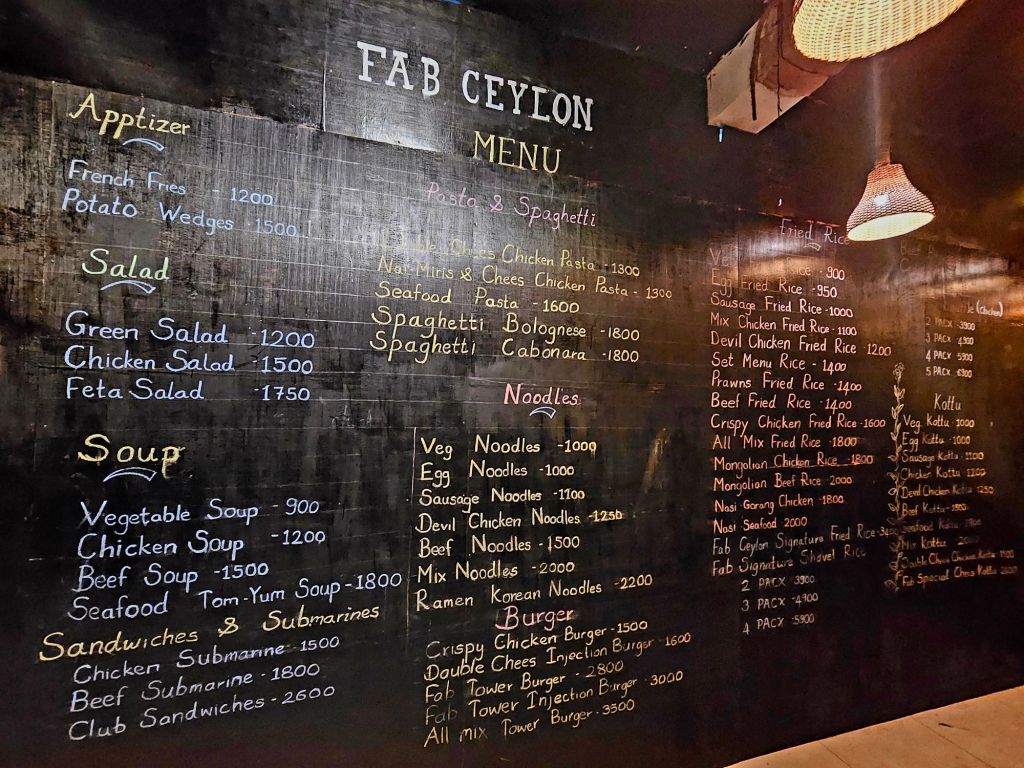 FAB CEYLON
MENU
Apptizer
French Fries - 1200
Potato Wedges - 1500
Salad
Green Salad - 1200
Chicken Salad 1500
Feta Salad - 1750
Soup
Vegetable Soup - 900
Chicken Soup - 1200
Beef Soup - 1500
Seafood Tom-Yum Soup - 1800
Sandwiches & Submarines
Chicken Submarine - 1500
Beef Submarine - 1800
Club Sandwiches - 2600
Pasta & Spaghetti
Chees Chicken Pasta - 1300
Nai-Miris & Chees Chicken Pasta - 1300
Seafood Pasta - 1600
Spaghetti Bolognese - 1800
Spaghetti Cabonara - 1800
Noodles
Veg Noodles - 1000
Egg Noodles - 1000
Sausage Noodles - 1100
Devil Chicken Noodles - 1250
Beef Noodles - 1500
Mix Noodles - 2000
Ramen Korean Noodles - 2200
Burger
Crispy Chicken Burger - 1500
Double Chees Injection Burger - 1600
Fab Tower Burger - 2800
Fab Tower Injection Burger - 3000
All mix Tower Burger - 3500
Fried Rice
Rice - 900
Egg Fried Rice - 950
Sausage Fried Rice - 1000
Mix Chicken Fried Rice - 1100
Devil Chicken Fried Rice - 1200
Set Menu Rice - 1400
Prawns Fried Rice - 1400
Beef Fried Rice - 1400
Crispy Chicken Fried Rice - 1600
All Mix Fried Rice - 1800
Mongolian Chicken Rice - 1800
Mongolian Beef Rice - 2000
Nasi Garang Chicken - 1800
Nasi Seafood 2000
Fab Ceylon Signature Fried Rice
Fab Signature Shovel Rice
2 PACX 3900
3 PACX - 4900
4 PACX - 5900
(Chicken)
2 PACX - 3900
3 PACX - 4900
4 PACX - 5900
5 PACX - 6900
Kottu
Veg. Kottu - 1000
Egg Kottu - 1000
Sausage Kottu - 1100
Chicken Kottu - 1200
Devil Chicken Kottu - 1250
Beef Kottu
Seafood Kottu
Mix Kottu - 2000
Double Chees Chicken Kottu
Fab Special Chees Kottu